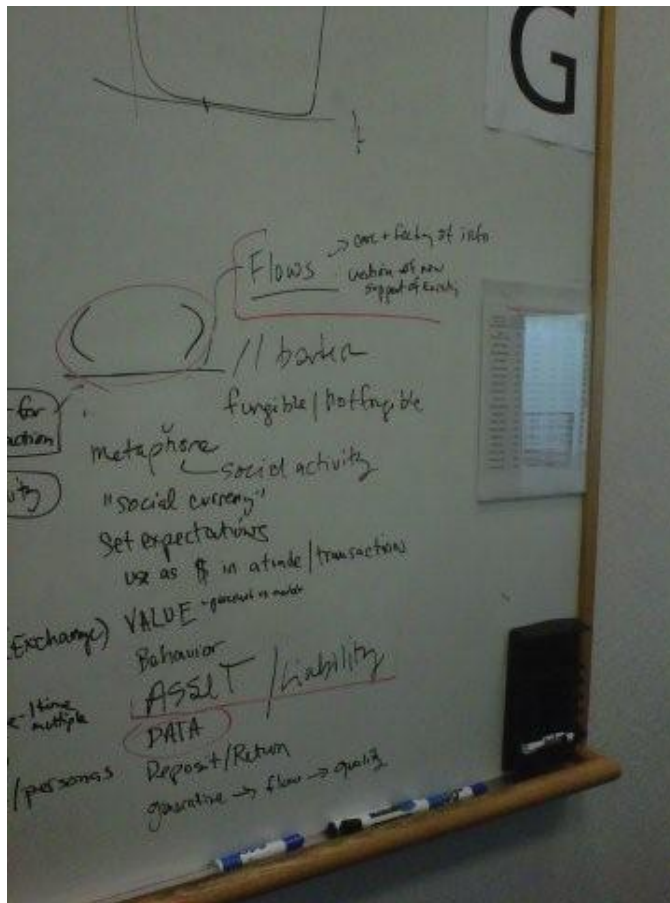 G
Flows
→ care + feeding of info
creation of new
support of
// barter
fungible / notfungible
for
action
metaphore
social activity
"social currency"
Set expectations
use as $ in a trade/transaction
Exchange) VALUE
Behavior
ASSET / Liability
time
multiple
DATA
/personas
Deposit/Return
generative → flow → quality